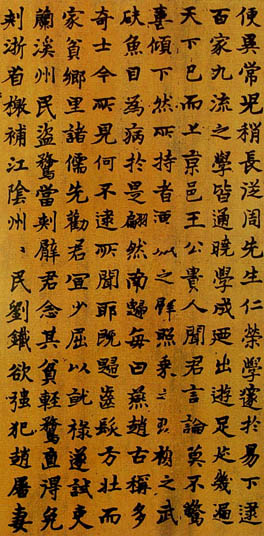 使異常兒稍長從周先生仁榮學邃於易下逮
百家九流之學皆通曉學成廼出遊足迹幾遍
天下已而上京邑王公貴人聞君言論莫不驚
喜傾下然所持者以之照乘之之武
砆魚目為病於是翩然南歸每曰燕趙古稱多
奇士今所見何不逮所聞耶既歸齒髮方壯而
家貧鄉里諸儒先勸君宜少屈以就祿遂試吏
蘭溪州民盜鶩當刺辟君念其貧輕鶩直得免
刺浙省檄補江陰州〻民劉鐵欲強犯趙屠妻